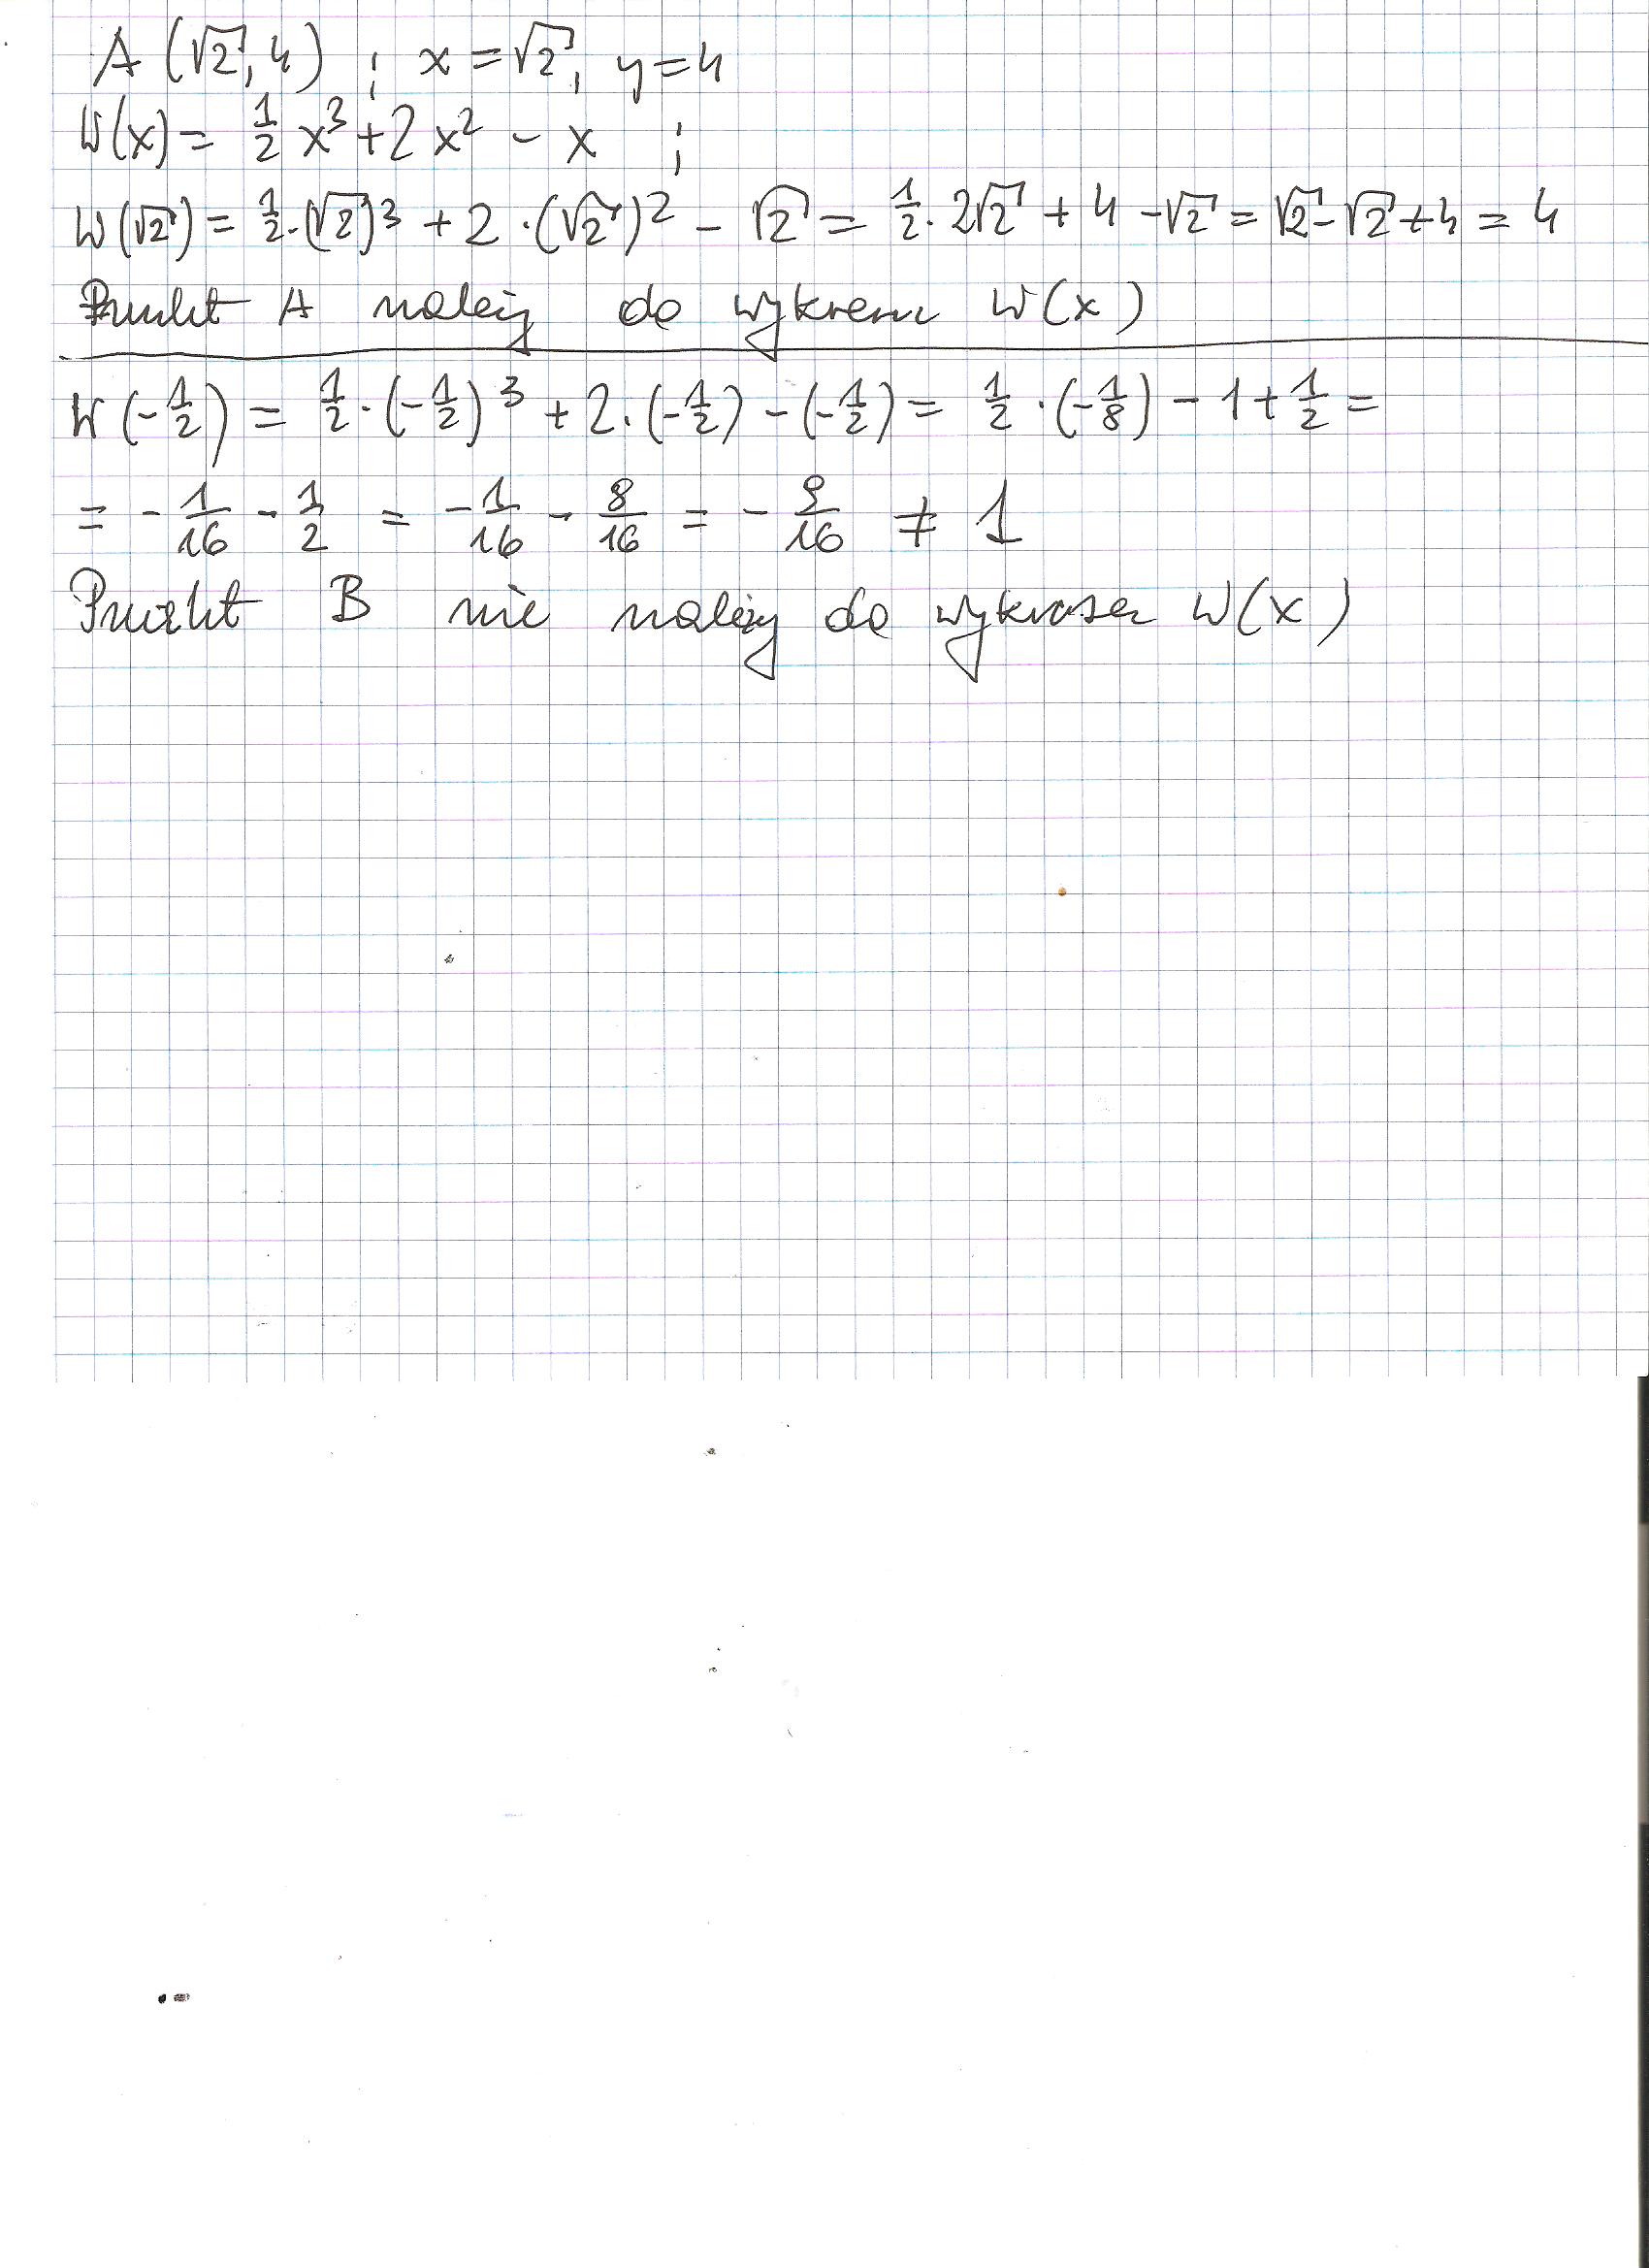 A (√2, 4) ; x = √2, y = 4
W(x) = 1/2 x³ + 2x² - x ;
W(√2) = 1/2 · (√2)³ + 2 · (√2)² - √2 = 1/2 · 2√2 + 4 - √2 = √2 - √2 + 4 = 4
Punkt A należy do wykresu W(x)
W(-1/2) = 1/2 · (-1/2)³ + 2 · (-1/2) - (-1/2) = 1/2 · (-1/8) - 1 + 1/2 =
= - 1/16 - 1/2 = - 1/16 - 8/16 = - 9/16 ≠ 1
Punkt B nie należy do wykresu W(x)